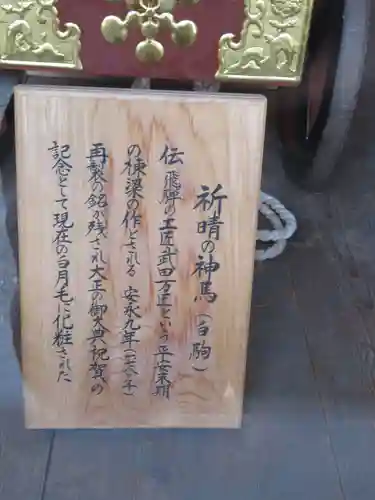 祈晴の神馬(白駒)
伝 飛騨の工匠武田万匠という平安末期
の棟梁の作とされる 安永九年(一七八〇年)
再製の銘が残され大正の御大典祝賀の
記念として現在の白月毛に化粧された